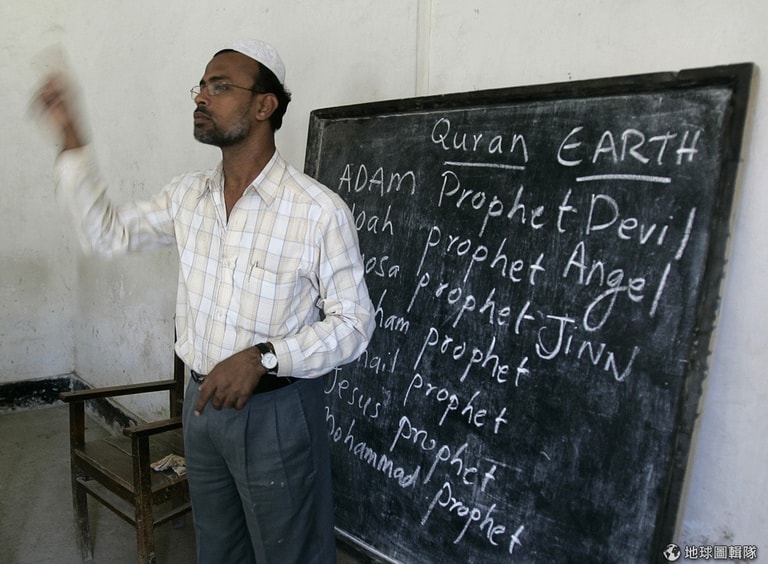 Quran EARTH
ADAM Prophet Devil
oah prophet Angel
osa prophet JINN
ham prophet
ail prophet
Jesus prophet
Mohammad prophet
地球圖輯隊